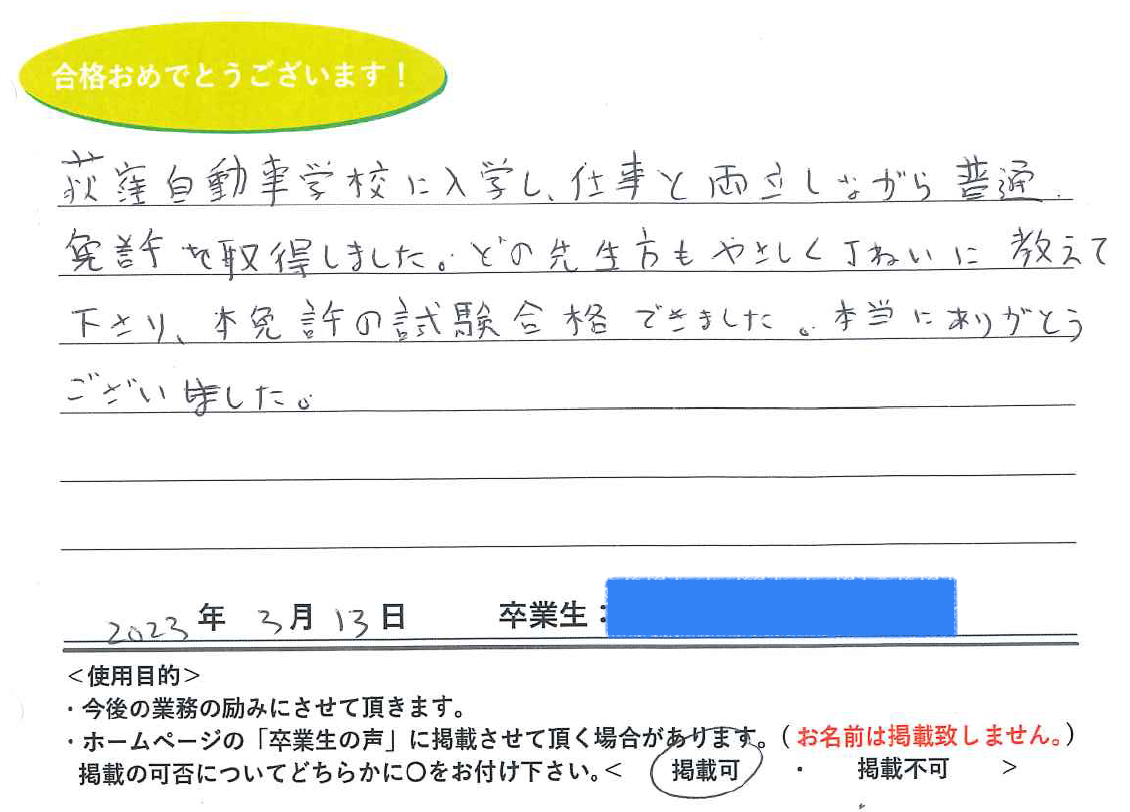 合格おめでとうございます！
荻窪自動車学校に入学し、仕事と両立しながら普通
免許を取得しました。どの先生方もやさしく丁ねいに教えて
下さり、本免許の試験合格できました。本当にありがとう
ございました。
2023年 3月 13日 卒業生：
＜使用目的＞
・今後の業務の励みにさせて頂きます。
・ホームページの「卒業生の声」に掲載させて頂く場合があります。（お名前は掲載致しません。）
掲載の可否についてどちらかに〇をお付け下さい。＜ 掲載可 ・ 掲載不可 ＞